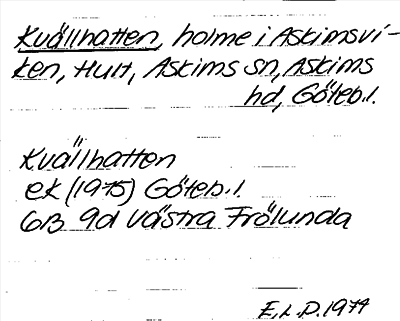 Kvällhatten, holme i Askimsvi-
ken, Hult, Askims sn, Askims
hd, Göteb.l.
Kvällhatten
ek (1975) Göteb.l.
6B 9d Västra Frölunda
E.L.P. 1979